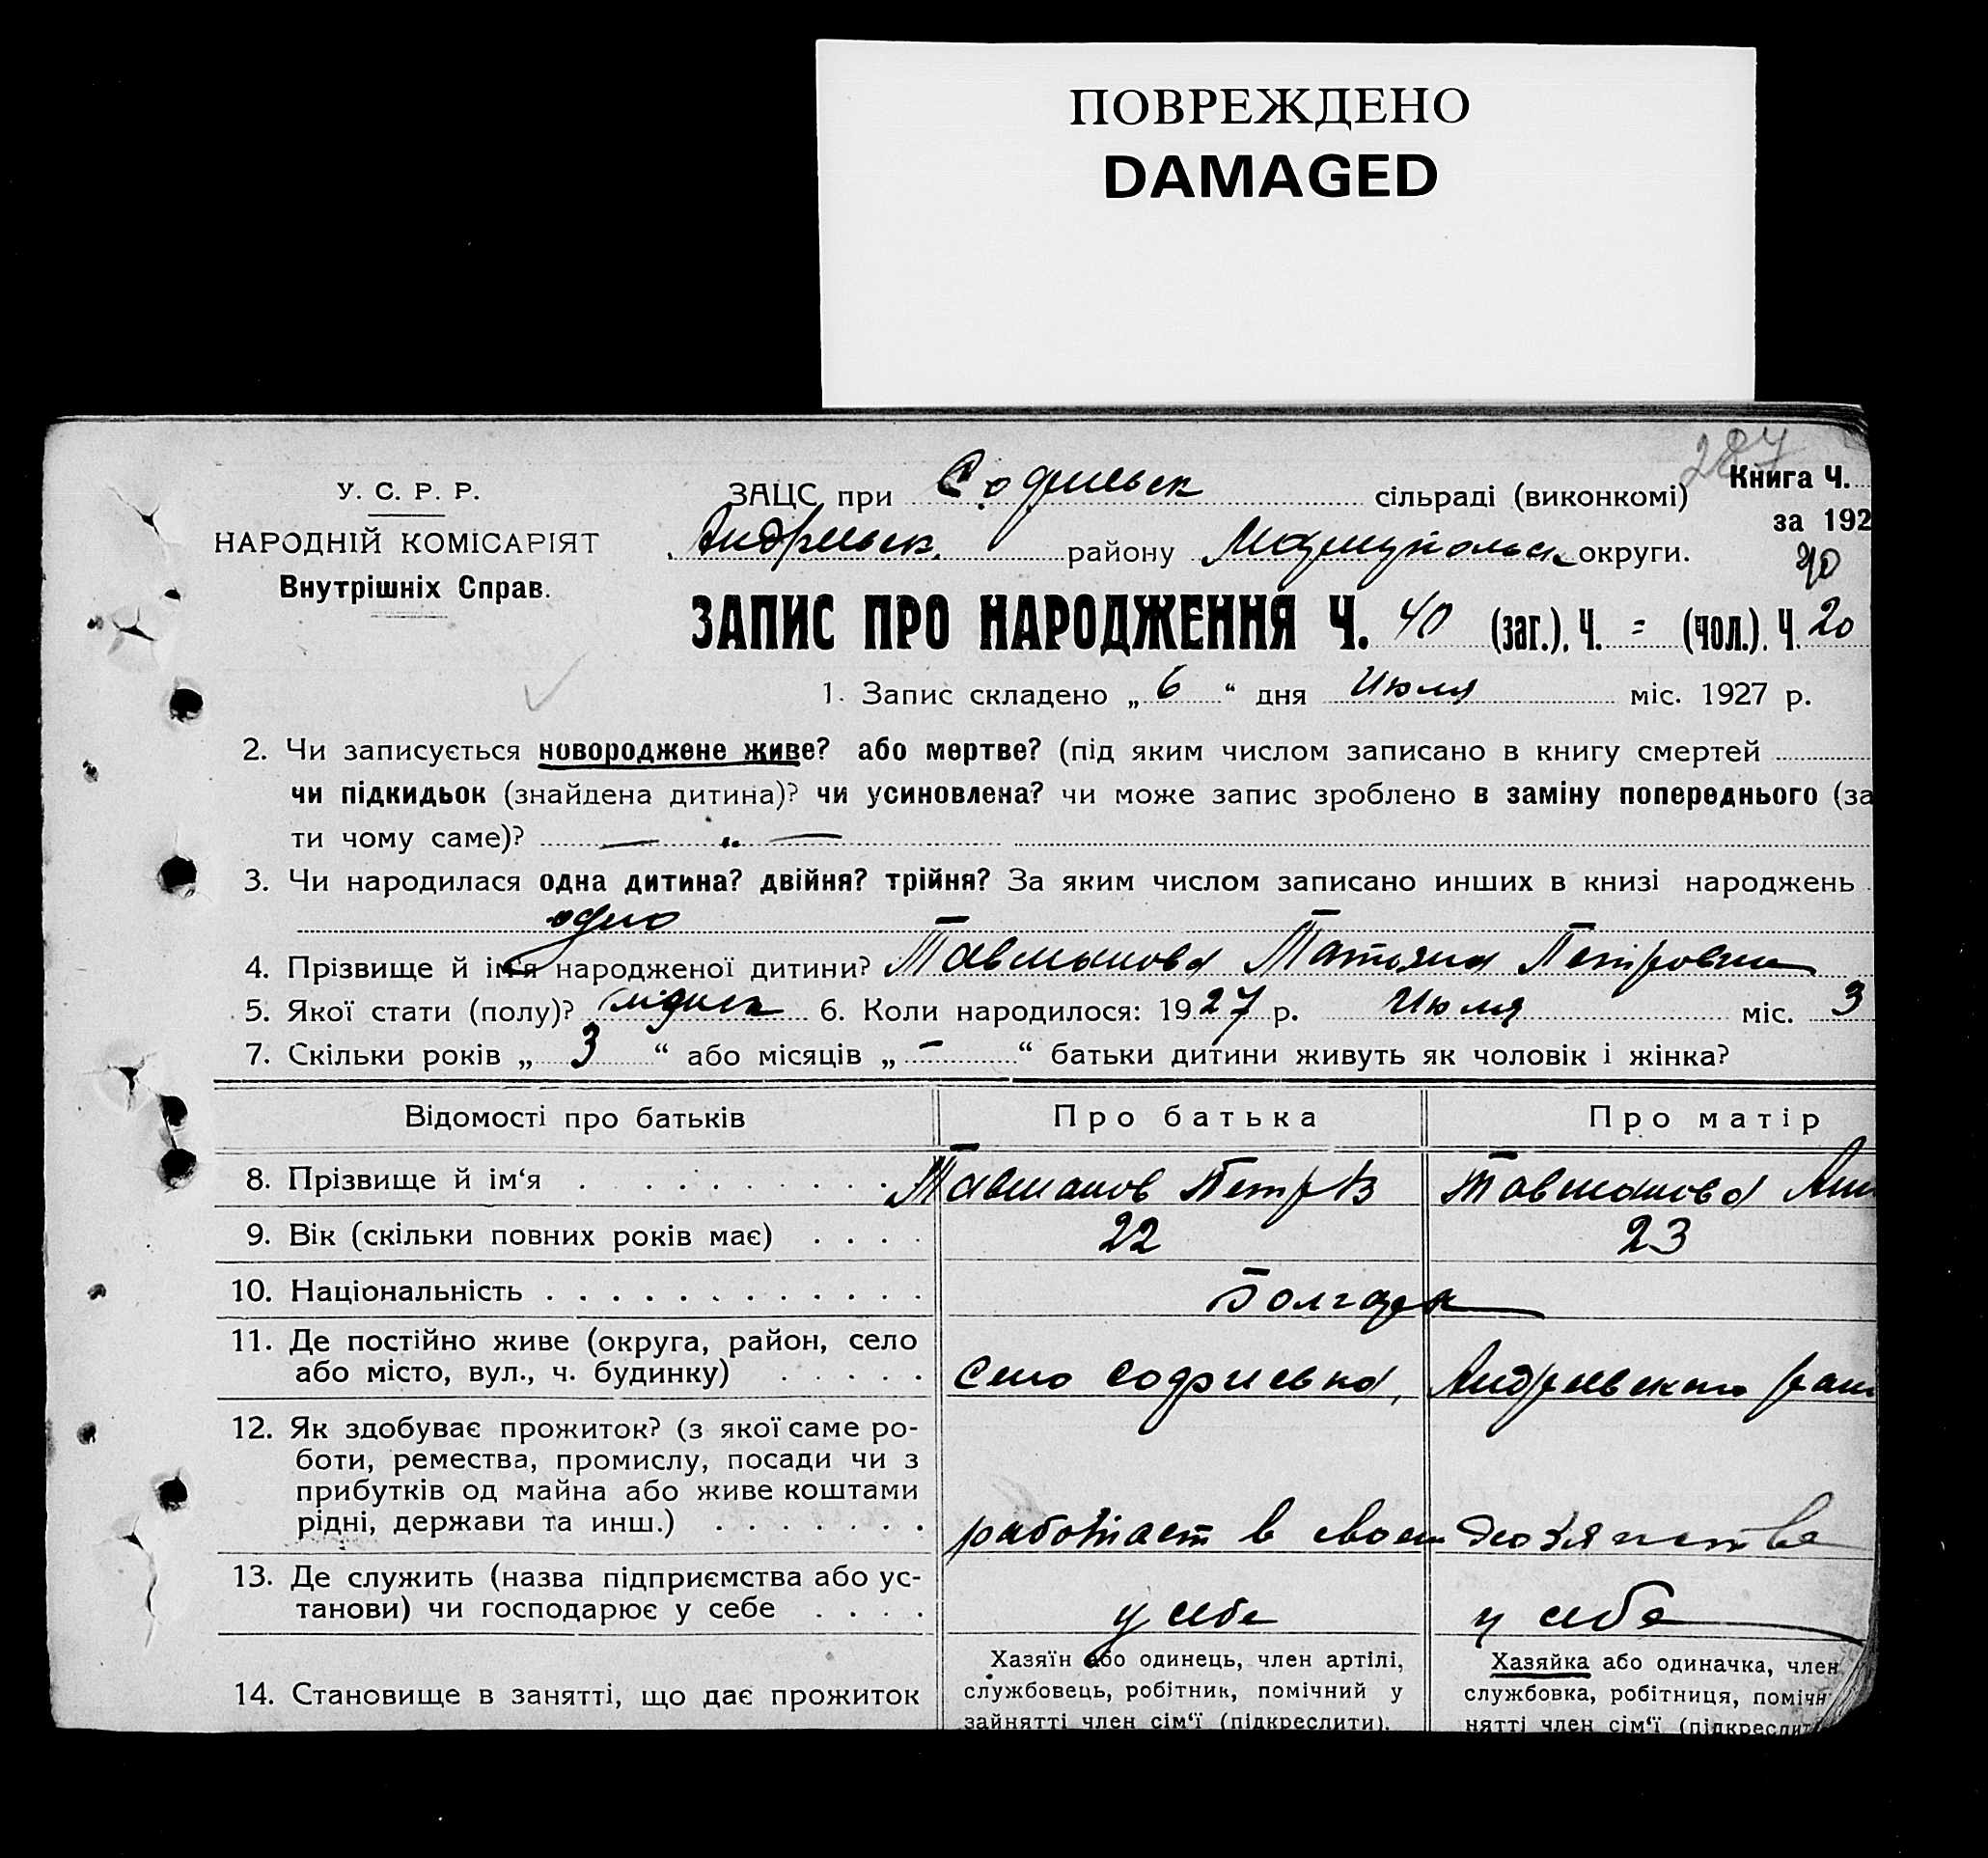 ПОВРЕЖДЕНО
DAMAGED
287
У. С. Р. Р.
НАРОДНІЙ КОМІСАРІЯТ
Внутрішніх Справ.
ЗАЦС при Софиевск сільраді (виконкомі)
Книга Ч.
за 192
Андреевск. району Мариупольск округи.
ЗАПИС ПРО НАРОДЖЕННЯ Ч. 40 (заг.). Ч. = (чол.). Ч. 20
1. Запис складено „ 6 “ дня Июля міс. 1927 р.
2. Чи записується новороджене живе? або мертве? (під яким числом записано в книгу смертей
чи підкидьок (знайдена дитина)? чи усиновлена? чи може запис зроблено в заміну попереднього (за
ти чому саме)? — „ —
3. Чи народилася одна дитина? двійня? трійня? За яким числом записано инших в книзі народжень
одно
4. Прізвище й ім‘я народженої дитини? Тавшанова Татьяна Петровна
5. Якої стати (полу)? 6. Коли народилося: 1927 р. Июля міс. 3
7. Скільки років „ 3 “ або місяців „ – “ батьки дитини живуть як чоловік і жінка?
Відомості про батьків Про батька Про матір
8. Прізвище й ім‘я Тавшанов Петр Тавшанова Анн
9. Вік (скільки повних років має) 22 23
10. Національність Болгаре
11. Де постійно живе (округа, район, село
або місто, вул., ч. будинку) Село Софиевка, Андреевского рай
12. Як здобуває прожиток? (з якої саме ро-
боти, ремества, промислу, посади чи з
прибутків од майна або живе коштами
рідні, держави та инш.) работает в своем хозяйстве
13. Де служить (назва підприємства або ус-
танови) чи господарює у себе у себе у себе
14. Становище в занятті, що дає прожиток
Хазяїн або одинець, член артілі,
службовець, робітник, помічний у
зайнятті член сім‘ї (підкреслити).
Хазяйка або одиначка, член
службовка, робітниця, поміч
нятті член сім‘ї (підкреслит